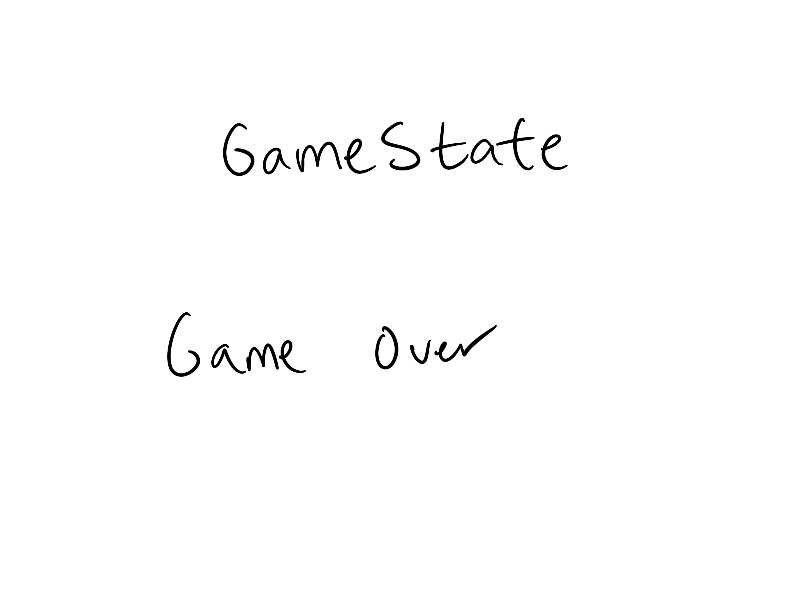 GameState
Game Over